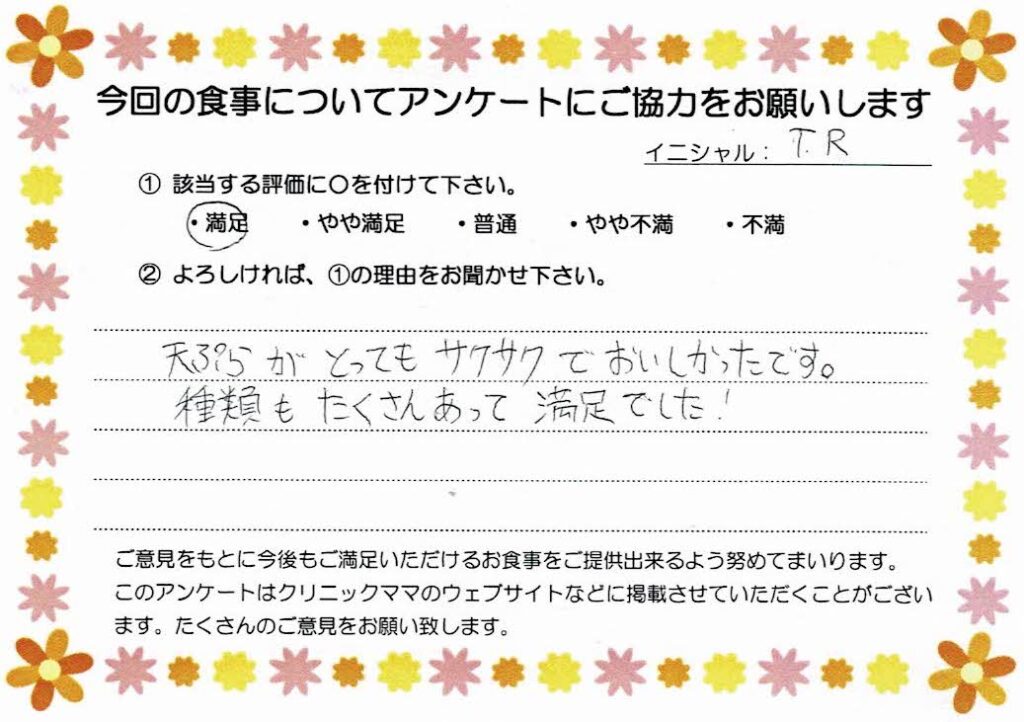 今回の食事についてアンケートにご協力をお願いします
イニシャル: T.R
① 該当する評価に〇を付けて下さい。
・満足 ・やや満足 ・普通 ・やや不満 ・不満
② よろしければ、①の理由をお聞かせ下さい。
天ぷらが とっても サクサクで おいしかったです。
種類も たくさんあって 満足でした!
ご意見をもとに今後もご満足いただけるお食事をご提供出来るよう努めてまいります。
このアンケートはクリニックママのウェブサイトなどに掲載させていただくことがござい
ます。たくさんのご意見をお願い致します。